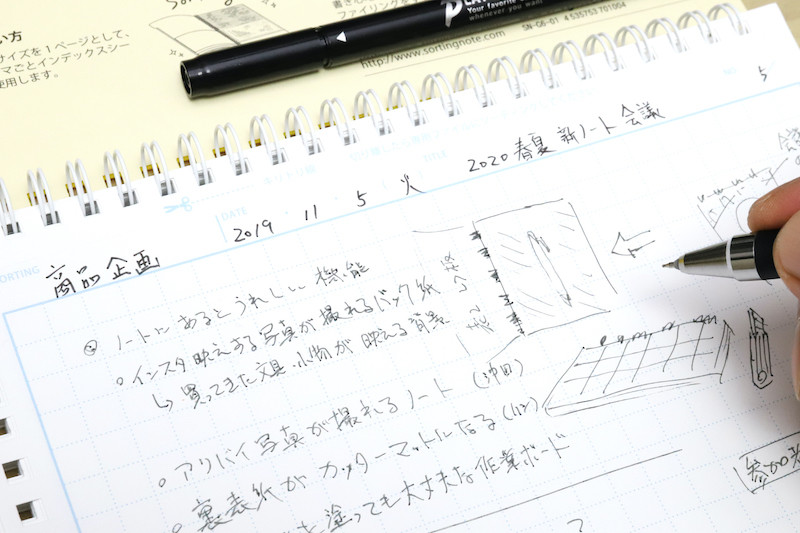 い方
サイズを1ページとして、
マごとインデックスシー
使用します。
ファイリングをす
Your favorite
whenever you want
http://www.sortingnote.com
SN-06-01 4 535753 701004
SORTING
商品企画
DATE
2019 11 5 火
TITLE
2020 春夏 新ノート会議
NO.
5
ノートにあるとうれしい機能
○インスタ映えする写真が撮れるバック紙
↳買ってきた文具・小物が映える背景
○アリバイ写真が撮れるノート(沖田)
○裏表紙がカッターマットになる
を塗っても大丈夫な作業ボード
?
参加